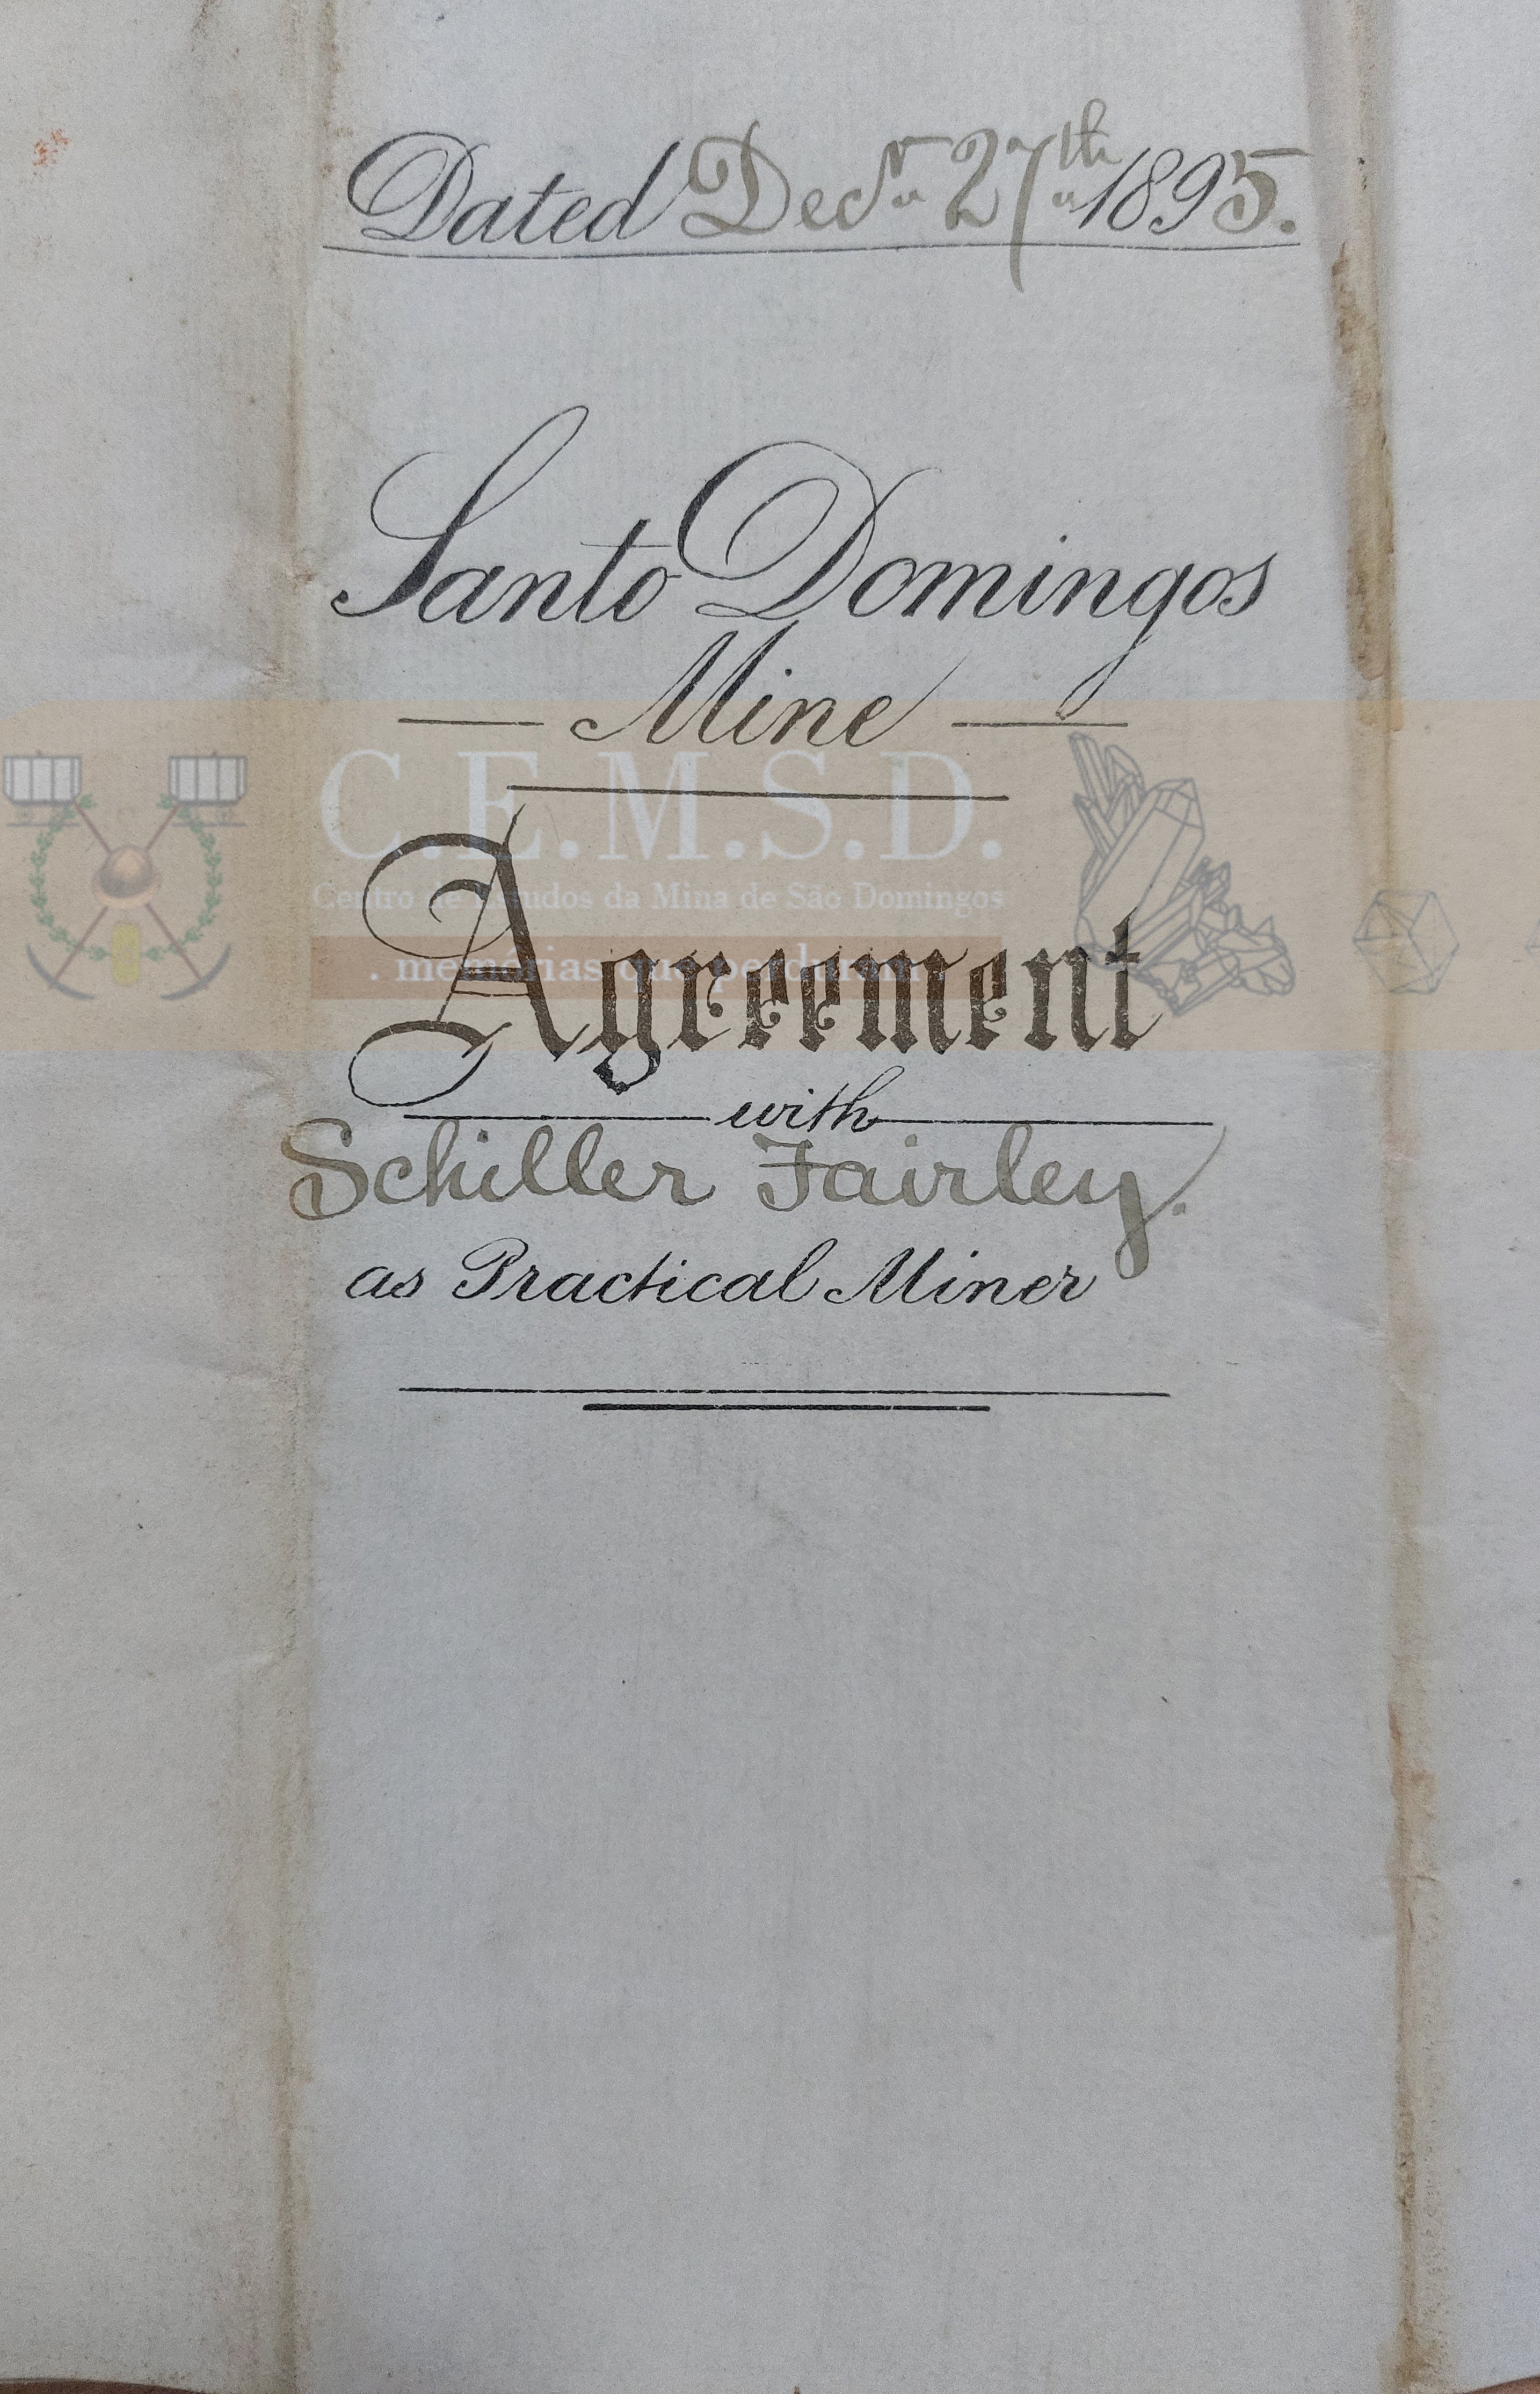 Dated Decr. 27th 1895.
Santo Domingos
Mine
C.E.M.S.D.
Centro de Estudos da Mina de São Domingos
. memórias que perduram
Agreement
with
Schiller Fairley.
as Practical Miner